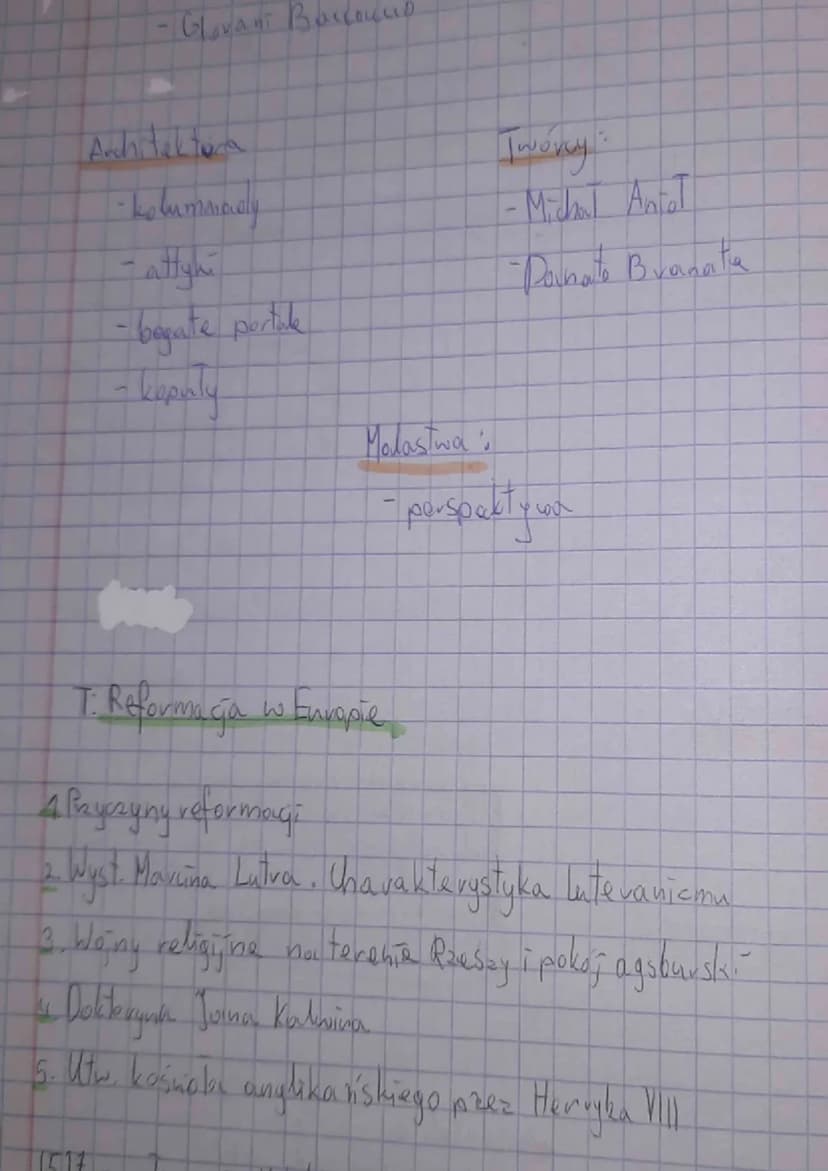 - Giovani Baccaccio
Architektura
- kolumnady
- attyki
- bogate portale
- kopuły
Twórcy:
- Michał Anioł
- Donato Bramate
Malastwa:
- perspaktywa
T: Reformacja w Europie
1. Przyczyny reformacji
2. Wyst. Marcina Lutra. Charakterystyka luteranicmu
3. Wojny religijne na terenie Rzeszy i pokój agsburski
4. Dokteryna Jana Kalwina
5. Utw. kościoła anglikańskiego przez Henryka VIII
1517